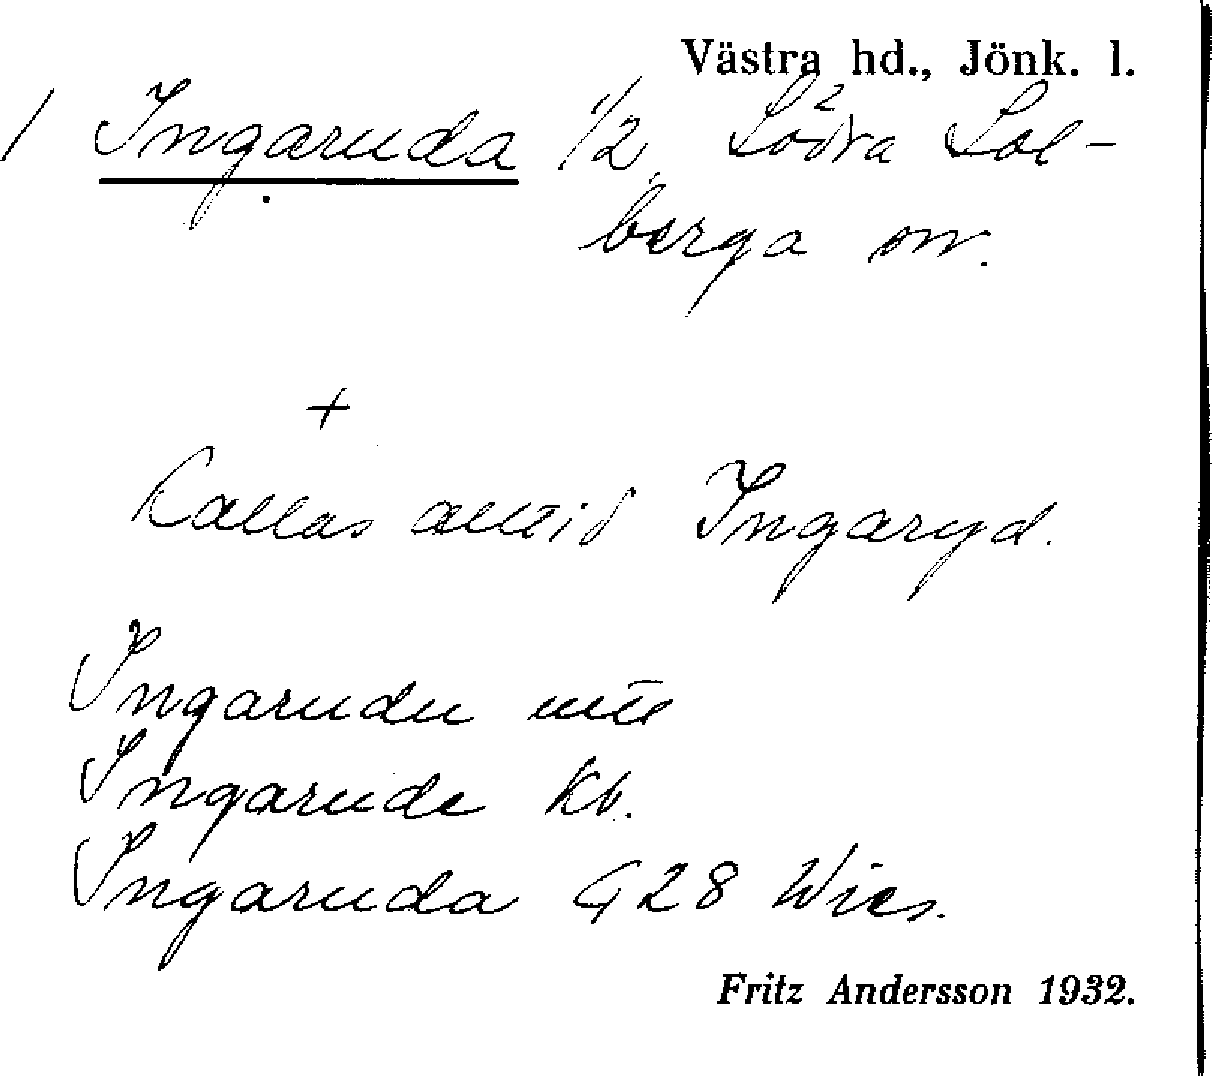 Västra hd., Jönk. l.
1 Ingaruda 1/2, Södra Sol-
berga sn.
+
Kallas alltid Ingaryd.
Ingarudu
Ingarude Kb.
Ingaruda G 28 Wies.
Fritz Andersson 1932.